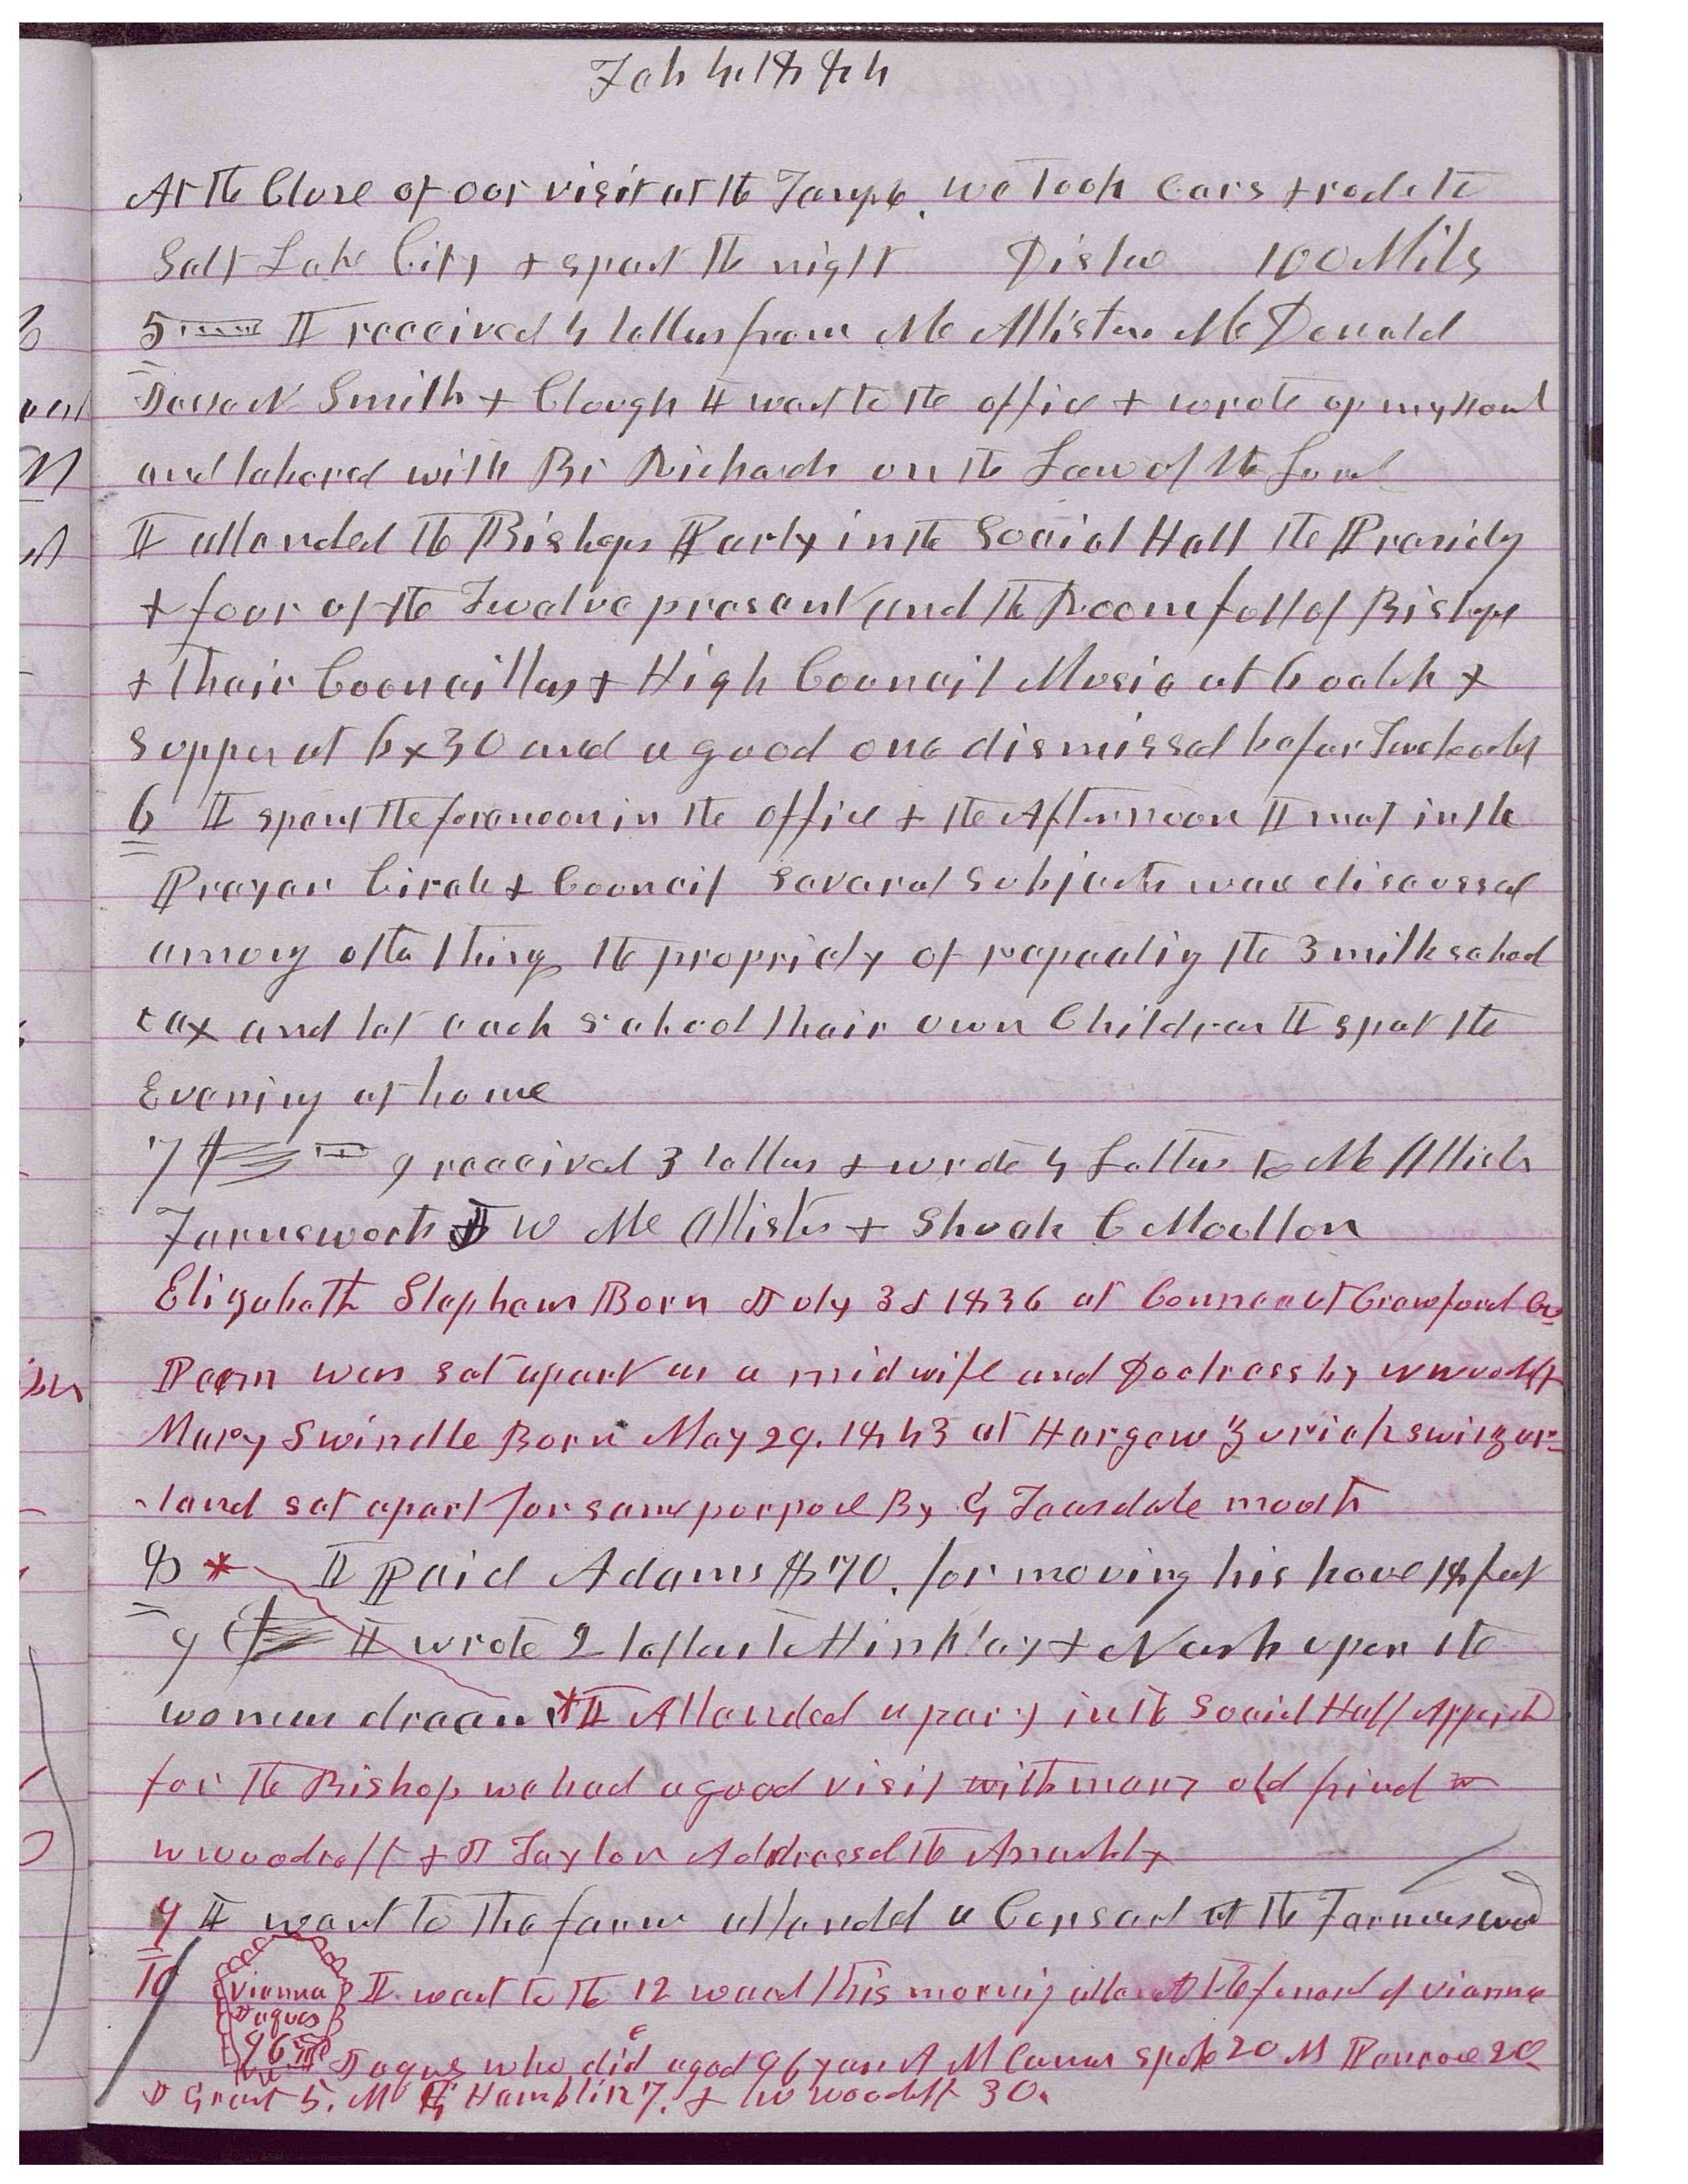 Feb 4, 1884
At the Close of our visit at the Temple. we took Cars & rode to
Salt Lake City & spent the night Distance 100 Miles
5 I received 4 letters from McAllister McDonald
Jesse N Smith & Clough I went to the office & wrote up my Journal
and labored with Br Richards on the Law of the Lord
I attended the Bishops Party in the Social Hall the Presidency
& four of the Twelve present and the Room full of Bishops
& their Councillors & High Council Music at 6 oclok &
Supper at 6x30 and a good one dismissed before Twelve oclok
6 I spent the forenoon in the office & the Afternoon I met in the
Prayer Circle & Council Several Subjects ware discussed
among other things the propriety of repealing the 3 mill school
tax and let each school their own Children I spent the
Evening at home
7 I received 3 letters & wrote 4 Letters to McAllister
Farnsworth W McAllister & Shuah C Moulton
Elizabeth Stephens Born July 3d 1836 at Conneaut Crawford Co
Penn was set apart as a midwife and Doctress by W Woodruff
Mary Swindle Born May 29. 1843 at Horgow Zurich Switzer-
-land set apart for same purpose By G Teasdale mouth
8 * I Paid Adams $70. for moving his house 18 feet
9 I wrote 2 letters to Hinkley & Nash upon the
womens dream * I Attended a party in the Social Hall Appointed
for the Bishop we had a good visit with many old friend
W Woodruff & J Taylor Addressed the Assembly
9 I went to the farm attended a Consert at the Farmers ward
10 Vienna Jaques 96 I went to the 12 ward this morning attend the funeral of Vienna
Jaques who died aged 96 years A M Cannon spoke 20 M Penrose 20
J Grant 5. M Hamblin 7. & W Woodruff 30.